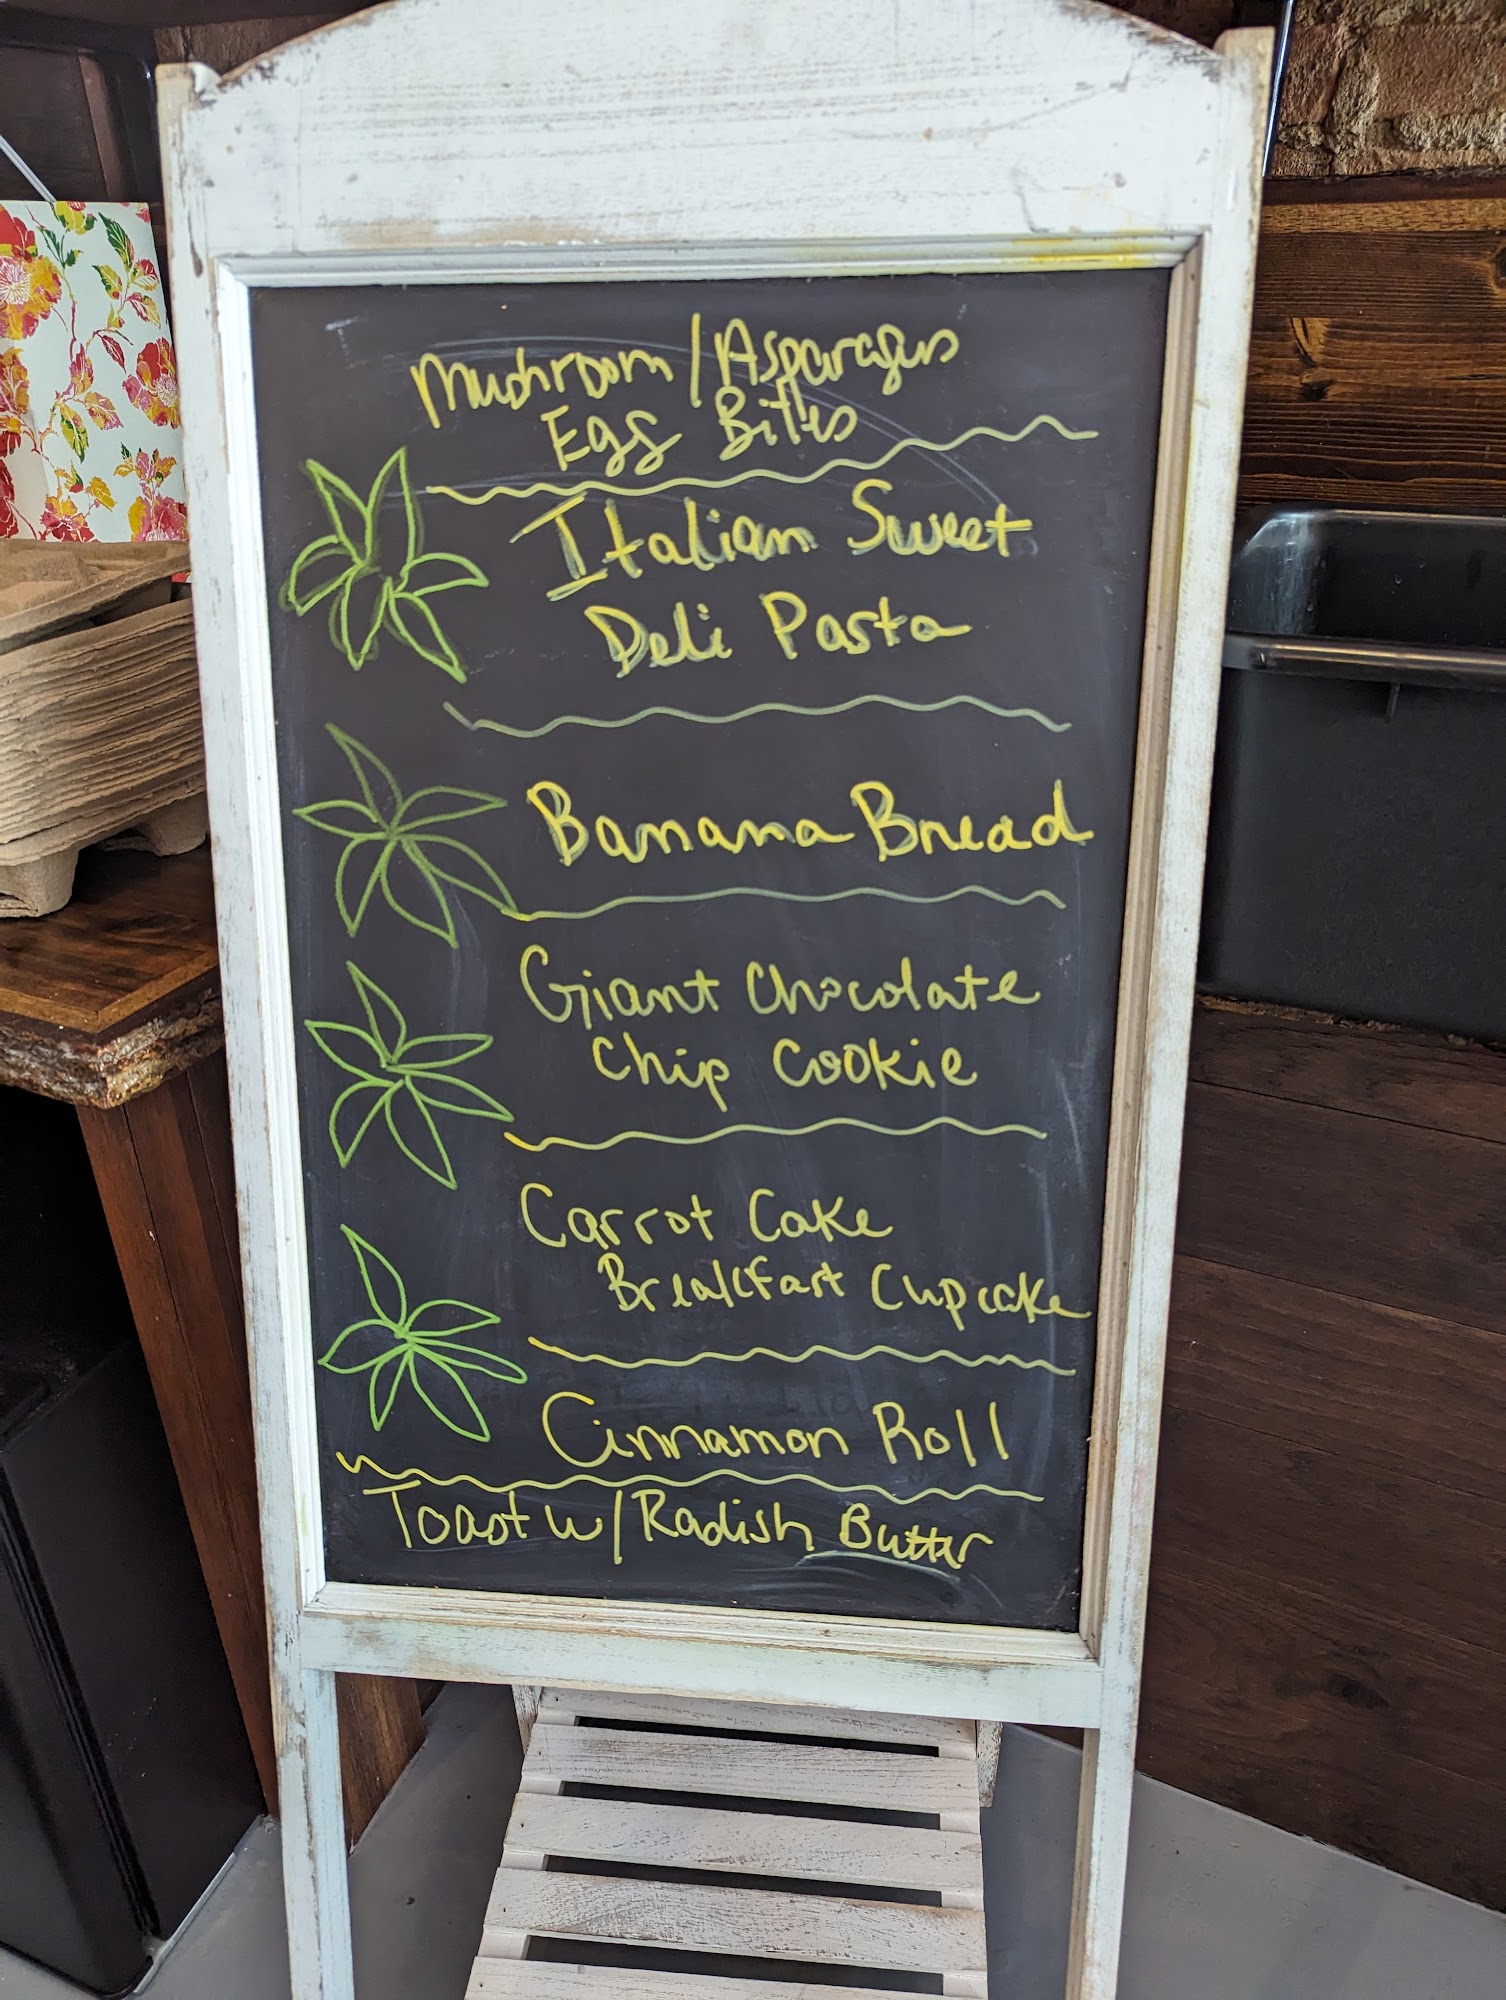 Mushroom/Asparagus
Egg Bites
Italian Sweet
Deli Pasta
Banana Bread
Giant Chocolate
Chip Cookie
Carrot Cake
Breakfast Cupcake
Cinnamon Roll
Toast w/Radish Butter